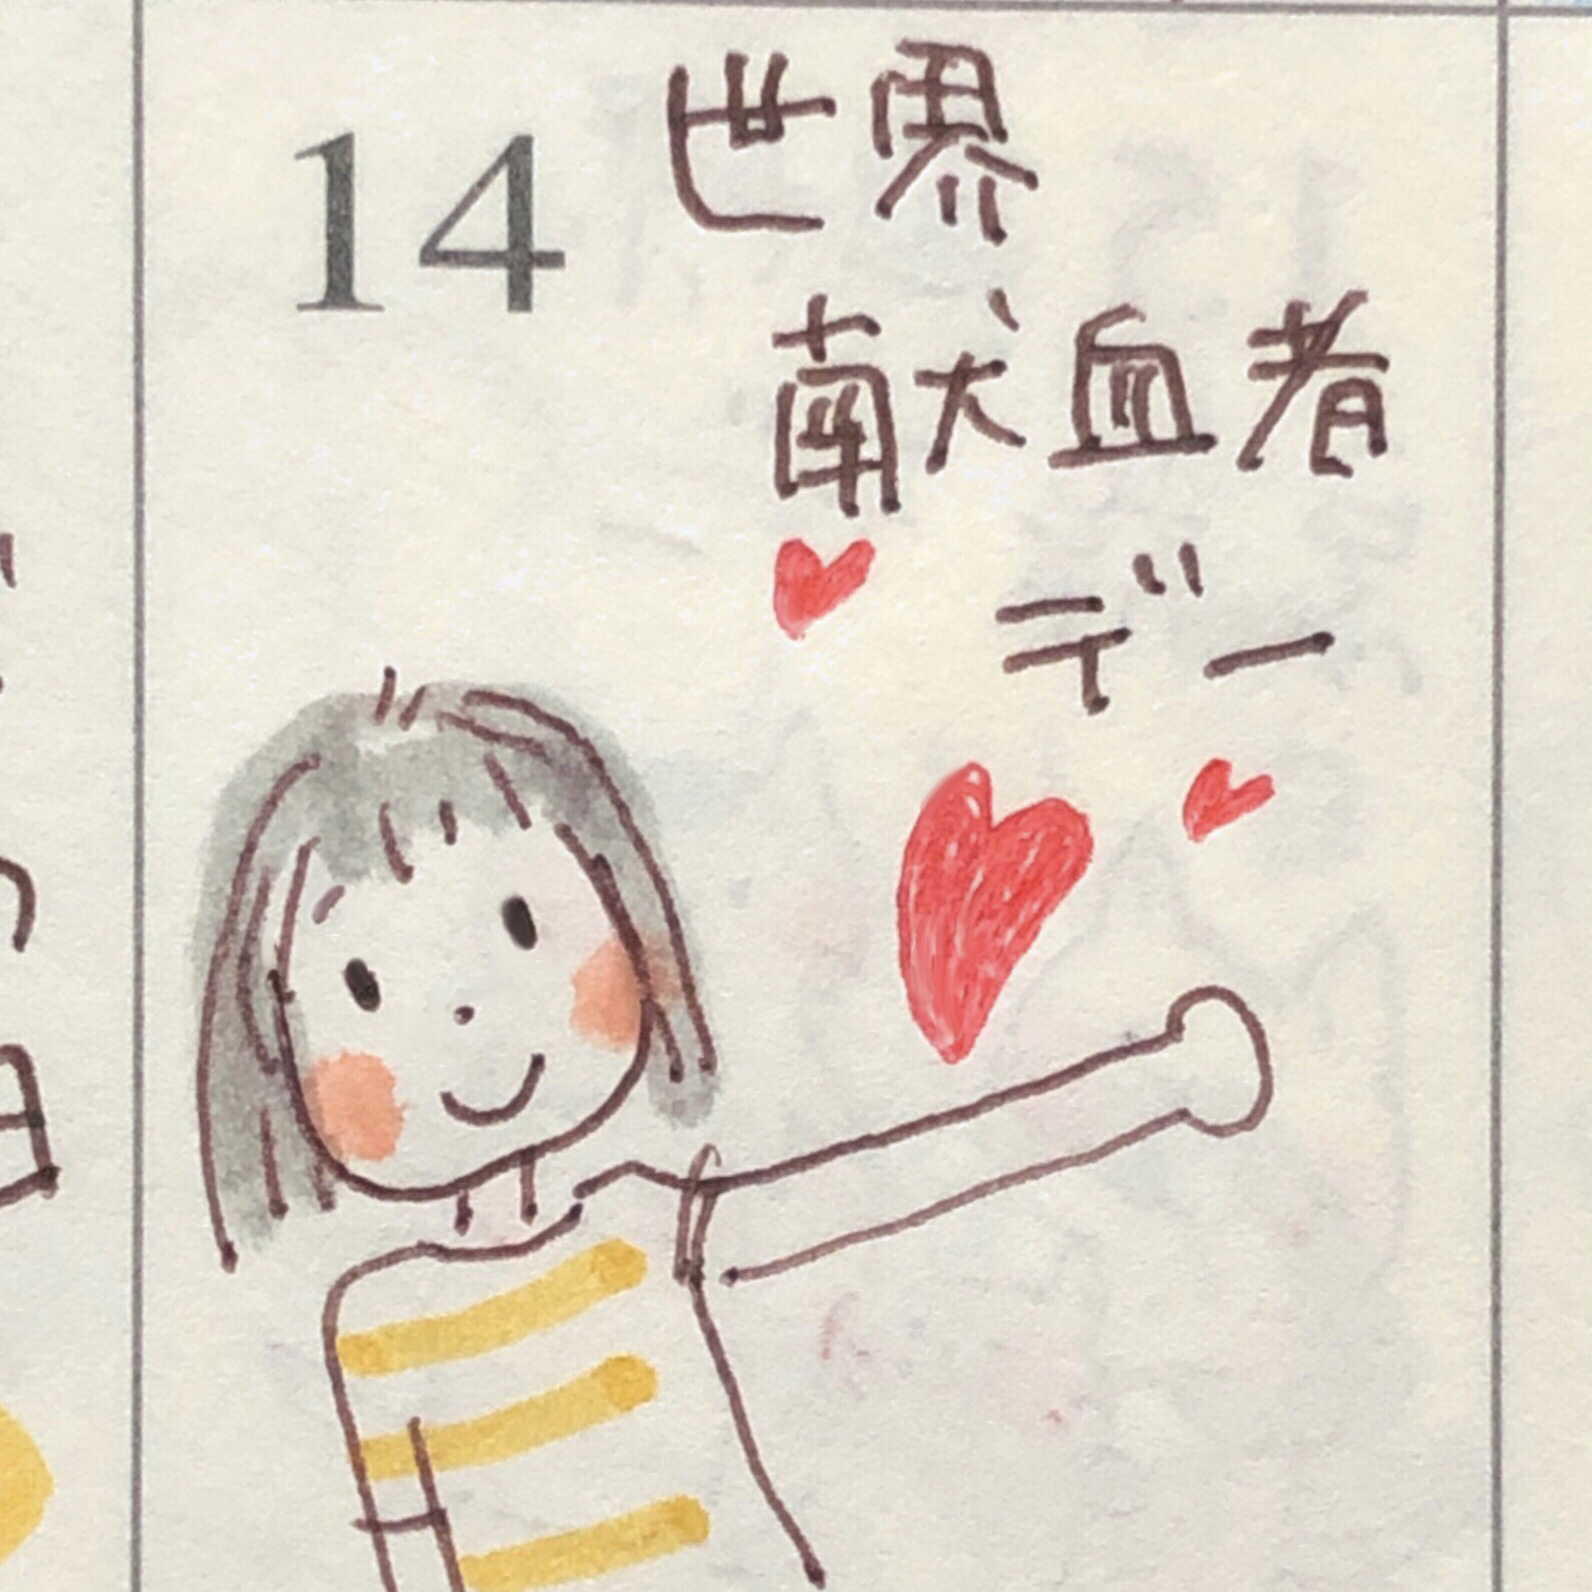 14 世界
献血者
デー